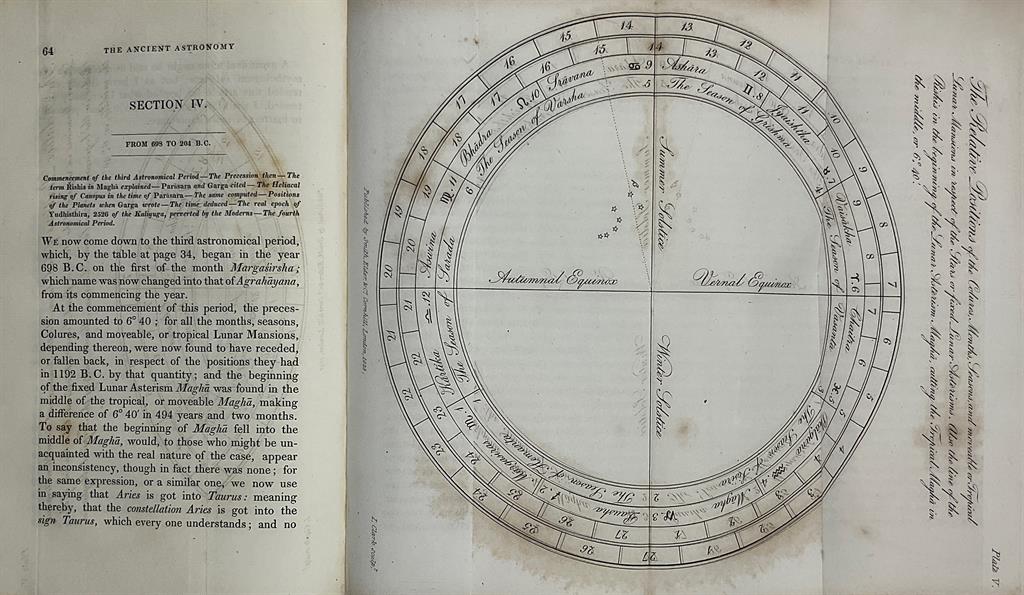 64
THE ANCIENT ASTRONOMY
SECTION IV.
FROM 698 TO 204 B.C.
Commencement of the third Astronomical Period—The Precession then—The
term Rishis in Maghā explained—Parāsara and Garga cited—The Heliacal
rising of Canopus in the time of Parāsara—The same computed—Positions
of the Planets when Garga wrote—The time deduced—The real epoch of
Yudhisthira, 2526 of the Kaliyuga, perverted by the Moderns—The fourth
Astronomical Period.
WE now come down to the third astronomical period,
which, by the table at page 34, began in the year
698 B.C. on the first of the month Margaśirsha;
which name was now changed into that of Agrahāyana,
from its commencing the year.
At the commencement of this period, the preces-
sion amounted to 6° 40′; for all the months, seasons,
Colures, and moveable, or tropical Lunar Mansions,
depending thereon, were now found to have receded,
or fallen back, in respect of the positions they had
in 1192 B.C. by that quantity; and the beginning
of the fixed Lunar Asterism Maghā was found in the
middle of the tropical, or moveable Maghā, making
a difference of 6° 40′ in 494 years and two months.
To say that the beginning of Maghā fell into the
middle of Maghā, would, to those who might be un-
acquainted with the real nature of the case, appear
an inconsistency, though in fact there was none; for
the same expression, or a similar one, we now use
in saying that Aries is got into Taurus: meaning
thereby, that the constellation Aries is got into the
sign Taurus, which every one understands; and no
Published by Smith, Elder, and Cornhill, London,
The Relative Positions of the Colures, Months, Seasons, and moveable or Tropical
Lunar Mansions in respect of the Stars or fixed Lunar Asterisms. Also the line of the
Rishis in the beginning of the Lunar Asterism Maghā, cutting the Tropical Maghā in
the middle, or 6° 40′.
Plate V.
15 14 13 12 11 10 9 8 7 6 5 4 3
27 26 25 24 23 22 21 20 19 18 17 16
15 14 13 12 11 10 9 8 7 6 5 4
27 26 25 24 23 22 21 20 19 18 17 16
♋ 9 Ashāra
♊ 8 Jyaishtha
♉ 7 Vaisākha
♈ 6 Chaitra
♓ 5 Phalguna
♒ 4 Magha
♑ 3 Pausha
♏ 1
♎ 12 Kārtika
♍ 11 Aswina
Bhadra
♌ 10 Srāvana
5 The Season of Grishma
4 The Season of Vasanta
3 The Season of Sisira
2 The Season of Hemanta
1 The Season of Sarada
6 The Season of Varsha
Summer Solstice
Autumnal Equinox
Vernal Equinox
Winter Solstice